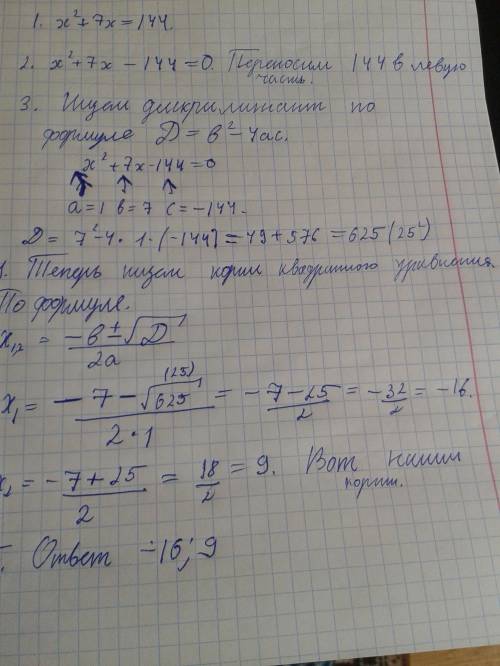 1. x²+7x=144.
2. x²+7x-144=0. Переносим 144 в левую
часть.
3. Ищем дискриминант по
формуле D=b²-4ac.
x²+7x-144=0
a=1 b=7 c=-144.
D= 7²-4·1·(-144)=49+576=625(25²)
Теперь ищем корни квадратного уравнения.
По формуле.
x₁,₂ = (-b±√D)/2a
x₁= (-7-√625 (25))/(2·1) = (-7-25)/2 = -32/2 = -16.
x₂ = (-7+25)/2 = 18/2 = 9. Вот наши
корни.
Ответ -16; 9